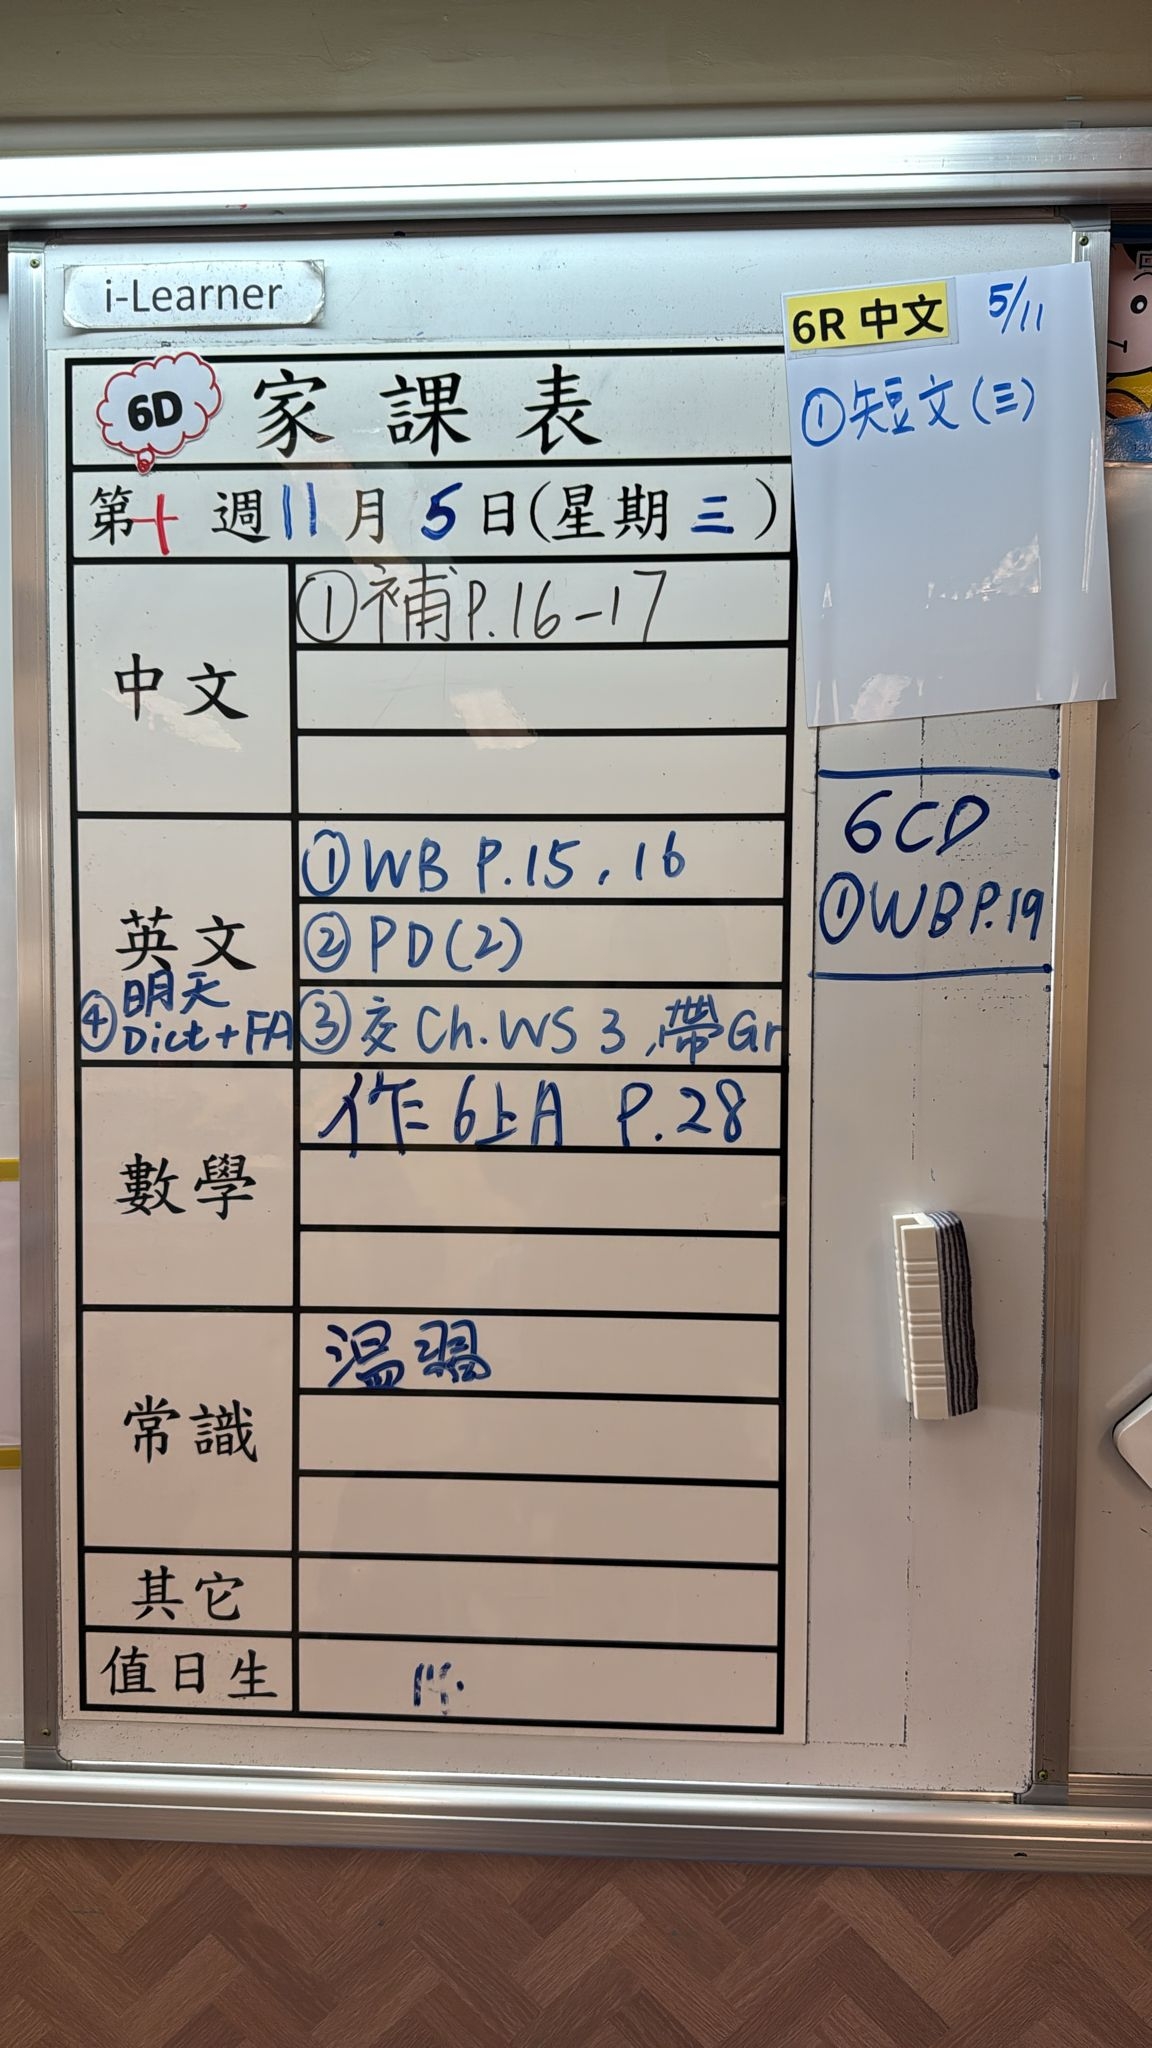 i-Learner
6D 家課表
第十週11月5日(星期三)
中文
①補P.16-17
英文
①WB P.15, 16
②PD(2)
③交 Ch.WS 3, 帶Gr
④明天
Dict+FA
數學
作 6上A P.28
常識
溫習
其它
值日生
6R 中文 5/11
①短文(三)
6CD
①WB P.19